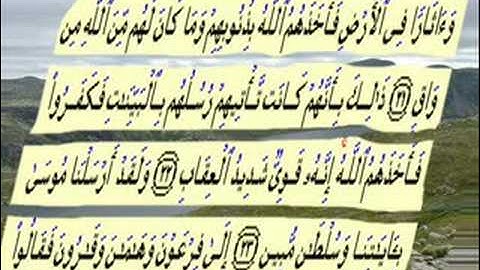 وَءَاثَارًا فِى ٱلْأَرْضِ فَأَخَذَهُمُ ٱللَّهُ بِذُنُوبِهِمْ وَمَا كَانَ لَهُم مِّنَ ٱللَّهِ مِن
وَاقٍ ﴿٢١﴾ ذَٰلِكَ بِأَنَّهُمْ كَانَت تَّأْتِيهِمْ رُسُلُهُم بِٱلْبَيِّنَٰتِ فَكَفَرُوا۟
فَأَخَذَهُمُ ٱللَّهُ إِنَّهُۥ قَوِىٌّ شَدِيدُ ٱلْعِقَابِ ﴿٢٢﴾ وَلَقَدْ أَرْسَلْنَا مُوسَىٰ
بِـَٔايَٰتِنَا وَسُلْطَٰنٍ مُّبِينٍ ﴿٢٣﴾ إِلَىٰ فِرْعَوْنَ وَهَٰمَٰنَ وَقَٰرُونَ فَقَالُوا۟